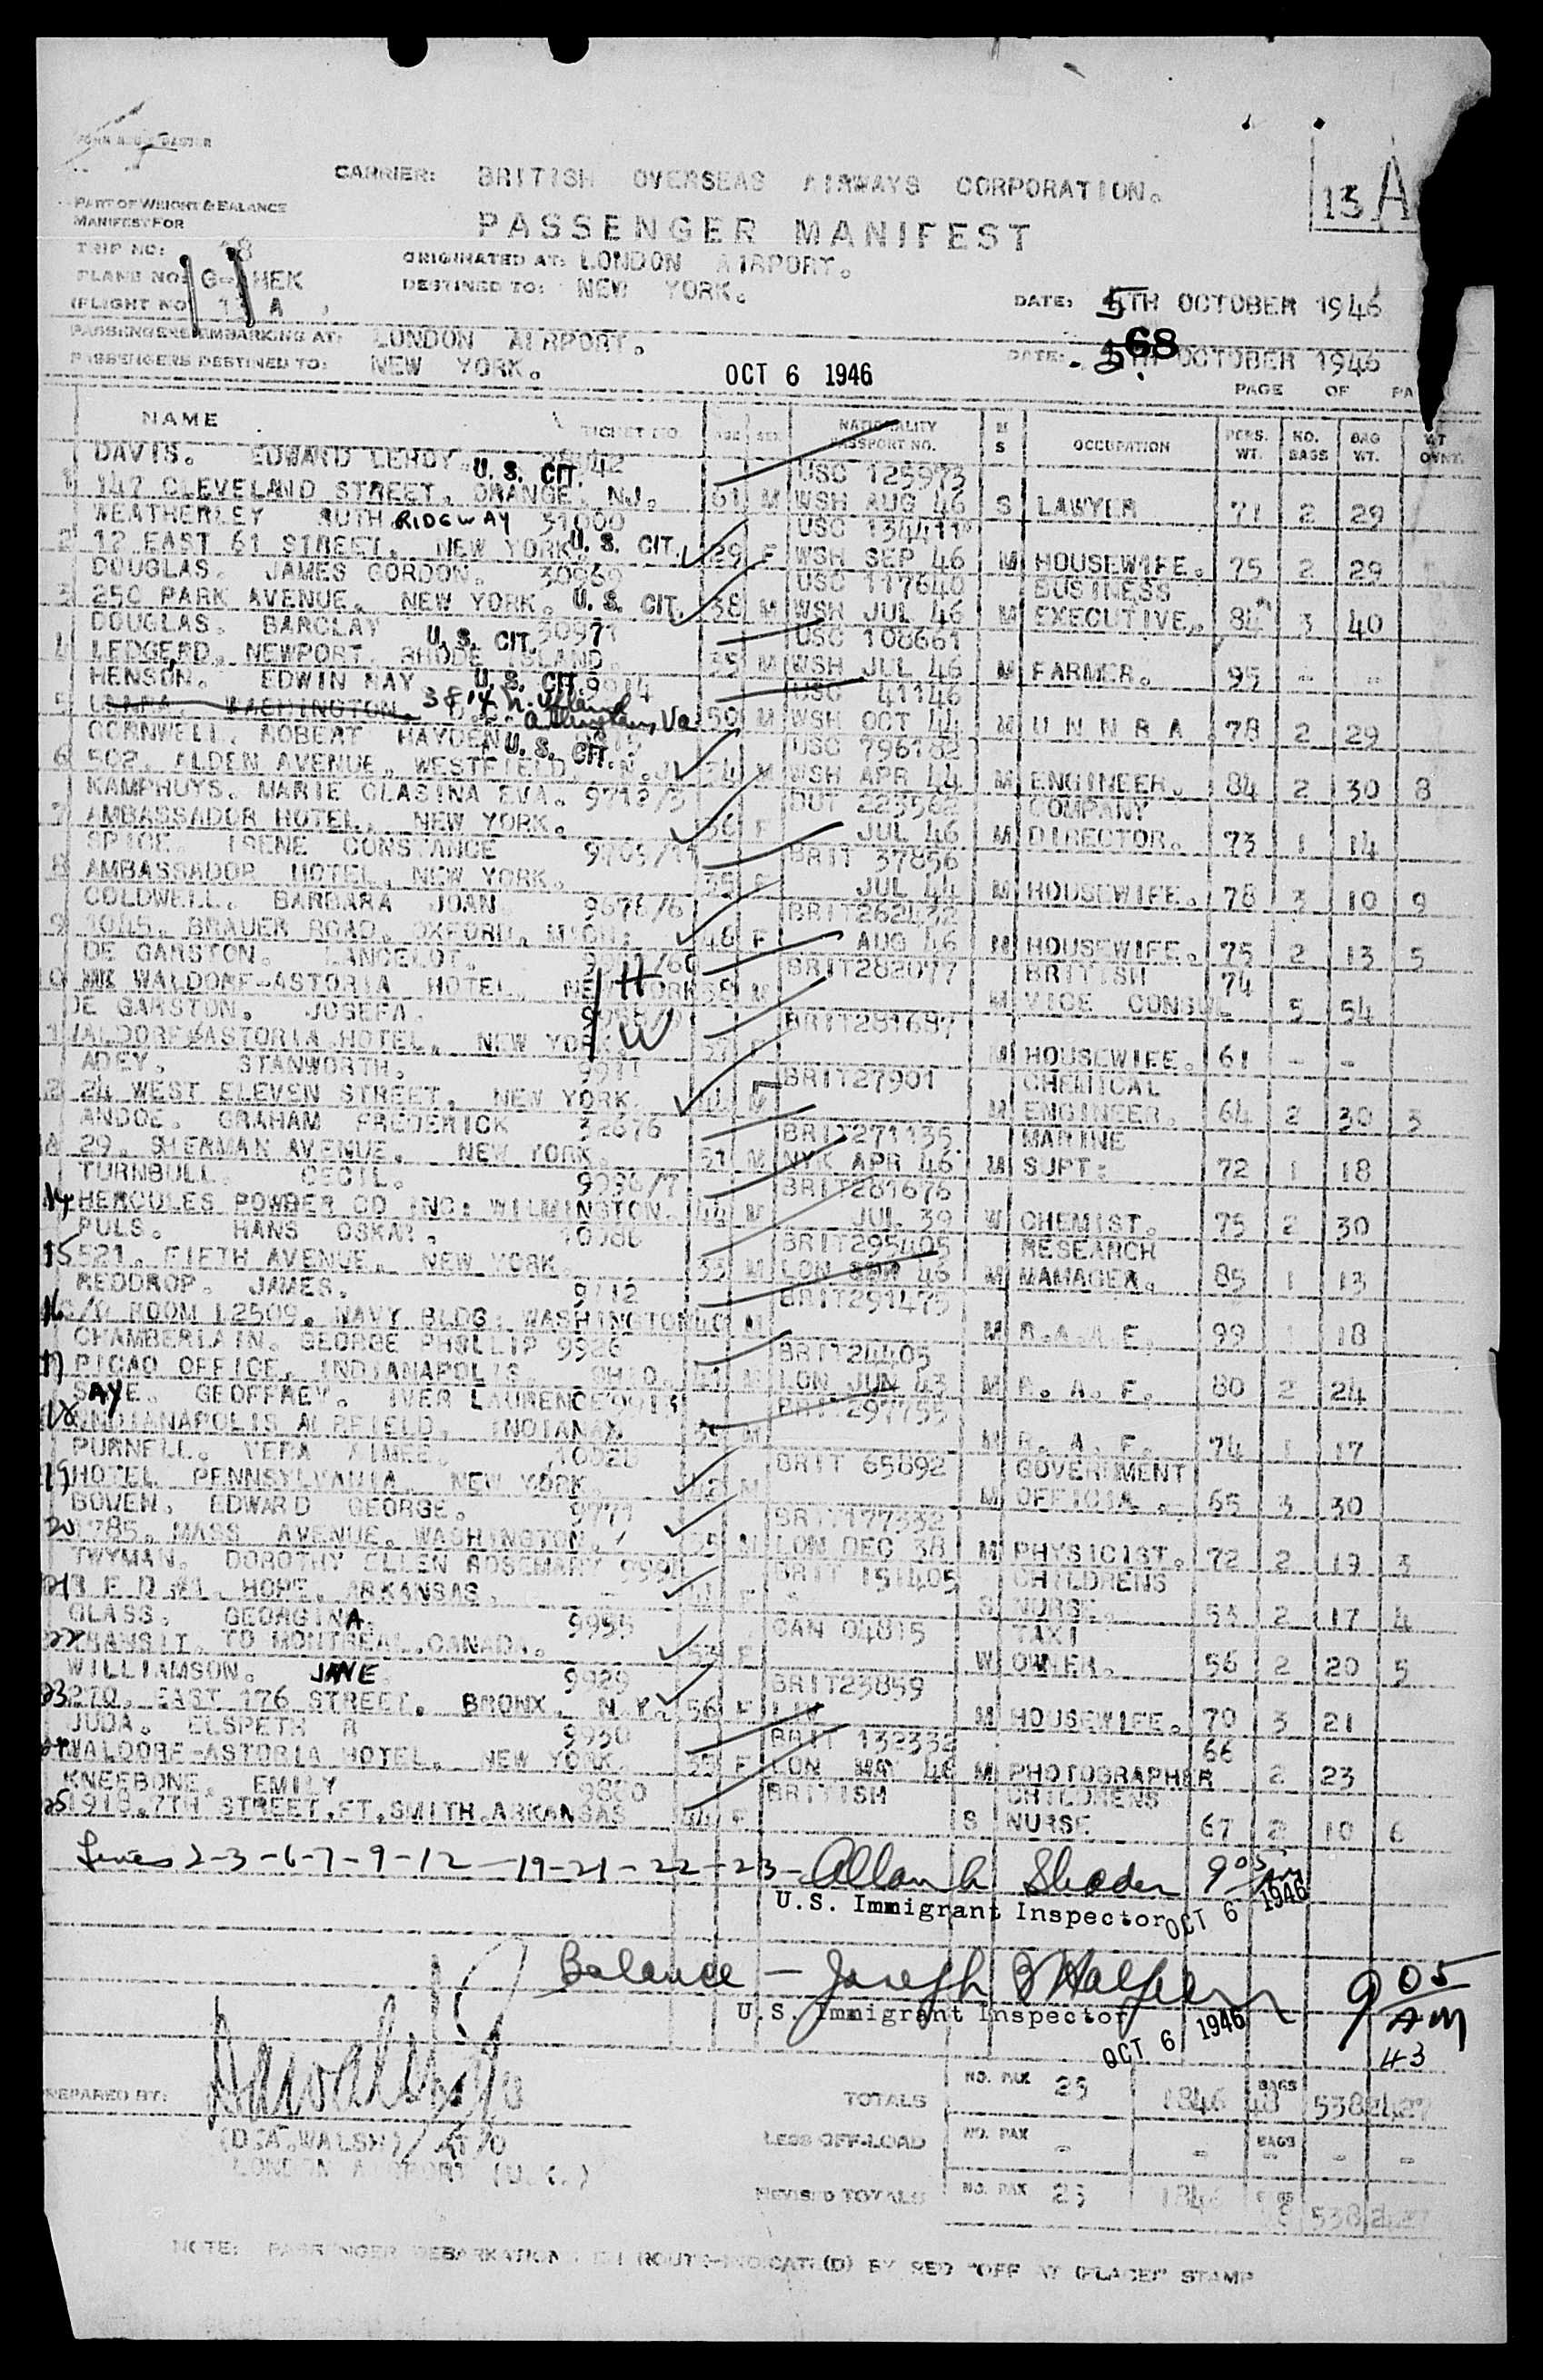 CARRIER: BRITISH OVERSEAS AIRWAYS CORPORATION.
13 A
PART OF WEIGHT & BALANCE
MANIFEST FOR
PASSENGER MANIFEST
TRIP NO: 18
ORIGINATED AT: LONDON AIRPORT.
PLANE NO: G-AHEK
DESTINED TO: NEW YORK.
DATE: 5TH OCTOBER 1946
(FLIGHT NO 13 A )
PASSENGERS EMBARKING AT: LONDON AIRPORT.
68
DATE: 5TH OCTOBER 1946
PASSENGERS DESTINED TO: NEW YORK.
OCT 6 1946
PAGE OF PA
NAME TICKET NO. AGE SEX NATIONALITY PASSPORT NO. M S OCCUPATION PERS. WT. NO. BAGS BAG WT. WT OVNT.
DAVIS. EDWARD LEROY. U.S. CIT. USC 125973
1 147 CLEVELAND STREET. ORANGE. NJ. 61 M WSH AUG 46 S LAWYER 71 2 29
WEATHERLEY RUTH RIDGWAY 31000 U.S. CIT. USC 134411
2 12 EAST 61 STREET. NEW YORK. 29 F WSH SEP 46 M HOUSEWIFE. 75 2 29
DOUGLAS. JAMES GORDON. 30969 USC 117640 BUSINESS
3 250 PARK AVENUE. NEW YORK. U.S. CIT. 38 M WSH JUL 46 M EXECUTIVE. 84 3 40
DOUGLAS. BARCLAY U.S. CIT. 30971 USC 108661
4 LEDGERD. NEWPORT. RHODE ISLAND. 35 M WSH JUL 46 M FARMER. 95 - -
HENSON. EDWIN RAY U.S. CIT. 9914 USC 41146
5 UNRRA. WASHINGTON. 3814 N. Arlington, Va 50 M WSH OCT 44 M U N N R A 78 2 29
CORNWELL. ROBERT HAYDEN U.S. CIT. USC 796182
6 502. ALDEN AVENUE. WESTFIELD. N.J. 34 M WSH APR 44 M ENGINEER. 84 2 30 8
KAMPHUYS. MARIE CLASINA EVA. 9712/3 DUT 223562 COMPANY
7 AMBASSADOR HOTEL. NEW YORK. 36 F JUL 46 M DIRECTOR. 73 1 14
SPICE. IRENE CONSTANCE BRIT 37856
8 AMBASSADOR HOTEL. NEW YORK. 35 F JUL 44 M HOUSEWIFE. 78 3 10 9
COLDWELL. BARBARA JOAN. 9678/6 BRIT262432
9 1045. BRAUER ROAD. OXFORD. MICH: 46 F AUG 46 M HOUSEWIFE. 75 2 13 5
DE GARSTON. LANCELOT. H BRIT282077 BRITISH 74
10 WALDORF-ASTORIA HOTEL. NEW YORK 38 M M VICE CONSUL 5 54
DE GARSTON. JOSEFA. W BRIT291697
WALDORF ASTORIA HOTEL. NEW YORK. 31 F M HOUSEWIFE. 61 - -
ADEY. STANWORTH. 9911 BRIT27901 CHEMICAL
12 24 WEST ELEVEN STREET. NEW YORK. M ENGINEER. 64 2 30 3
ANDOE. GRAHAM FREDERICK 32676 BRIT271135 MARINE
29. SHERMAN AVENUE. NEW YORK. 51 M NYK APR 46 M SUPT: 72 1 18
TURNBULL. CECIL. 9996/7 BRIT281676
14 HERCULES POWDER CO INC: WILMINGTON. 44 M JUL 39 W CHEMIST. 75 2 30
PULS. HANS OSKAR. BRIT295405 RESEARCH
15 521. FIFTH AVENUE. NEW YORK. 35 M LON 46 M MANAGER. 85 1 13
REDDROP. JAMES. 9712 BRIT291475
16 C/O ROOM 12509. NAVY BLDG: WASHINGTON 40 M M R.A.A.E. 99 1 18
CHAMBERLAIN. GEORGE PHILLIP 9926 BRIT24405
17 PICAO OFFICE. INDIANAPOLIS OHIO. 41 M LON JUN 43 M R. A. F. 80 2 24
SAYE. GEOFFREY. IVER LAURENCE 9913 BRIT297755
18 INDIANAPOLIS AIRFIELD. INDIANA. 35 M M R. A. F. 74 1 17
PURNELL. VERA AIMEE. 10028 BRIT 65892 GOVERNMENT
19 HOTEL PENNSYLVANIA. NEW YORK. 42 M M OFFICIAL. 65 3 30
BOWEN. EDWARD GEORGE. 9771 BRIT177332
20 1785. MASS AVENUE. WASHINGTON. 35 M LON DEC 38 M PHYSICIST. 72 2 19 3
TWYMAN. DOROTHY ELLEN ROSEMARY 9990 BRIT 151405 CHILDRENS
21 R F D #1. HOPE. ARKANSAS. F S NURSE. 53 2 17 4
GLASS. GEORGINA. 9955 CAN 04815 TAXI
22 TRANSIT. TO MONTREAL. CANADA. 53 F W OWNER. 56 2 20 5
WILLIAMSON. JANE. 9929 BRIT23859
23 270. EAST 176 STREET. BRONX. N.Y. 56 F LIV M HOUSEWIFE. 70 3 21
JUDA. ELSPETH R 9930 BRIT 132332 66
24 WALDORF-ASTORIA HOTEL. NEW YORK. 35 F LON MAY 46 M PHOTOGRAPHER 2 23
KNEEBONE. EMILY 9880 BRITISH CHILDRENS
25 1918.7TH STREET.FT.SMITH.ARKANSAS 44 F S NURSE 67 2 10 6
Lines 2-3-6-7-9-12-19-21-22-23- Allan A Shader 9 05 AM
U.S. Immigrant Inspector OCT 6 1946
Balance - Joseph B Halpern 9 05 AM
U.S. Immigrant Inspector
OCT 6 1946
43
PREPARED BY:
TOTALS NO. PAX 25 1846 BAGS 48 538 2427
(D.A.WALSH)
LESS OFF-LOAD NO. PAX - - BAGS - - -
LONDON AIRPORT (U.K.)
REVISED TOTALS NO. PAX 25 1846 BAGS 48 538 2427
NOTE: PASSENGER DEBARKATIONS EN ROUTE INDICATE(D) BY RED "OFF AT (PLACE)" STAMP